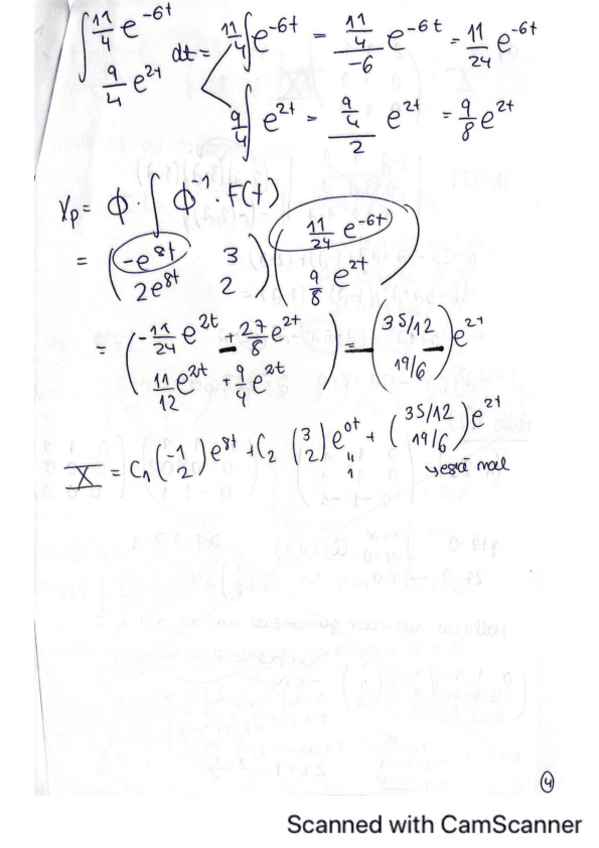 ∫ 11/4 e^-6t
9/4 e^2t dt = 11/4 ∫ e^-6t = (11/4)/-6 e^-6t = 11/24 e^-6t
9/4 ∫ e^2t = (9/4)/2 e^2t = 9/8 e^2t
Xp = Φ · ∫ Φ^-1 · F(t)
= ( -e^8t 3 ) ( 11/24 e^-6t )
( 2e^8t 2 ) ( 9/8 e^2t )
= ( -11/24 e^2t + 27/8 e^2t ) = ( 35/12 ) e^2t
( 11/12 e^2t + 9/4 e^2t ) ( 19/6 )
X = C1 ( -1 2 ) e^8t + C2 ( 3 2 ) e^0t + ( 35/12 19/6 ) e^2t
" 1
↳ está mal
4
Scanned with CamScanner